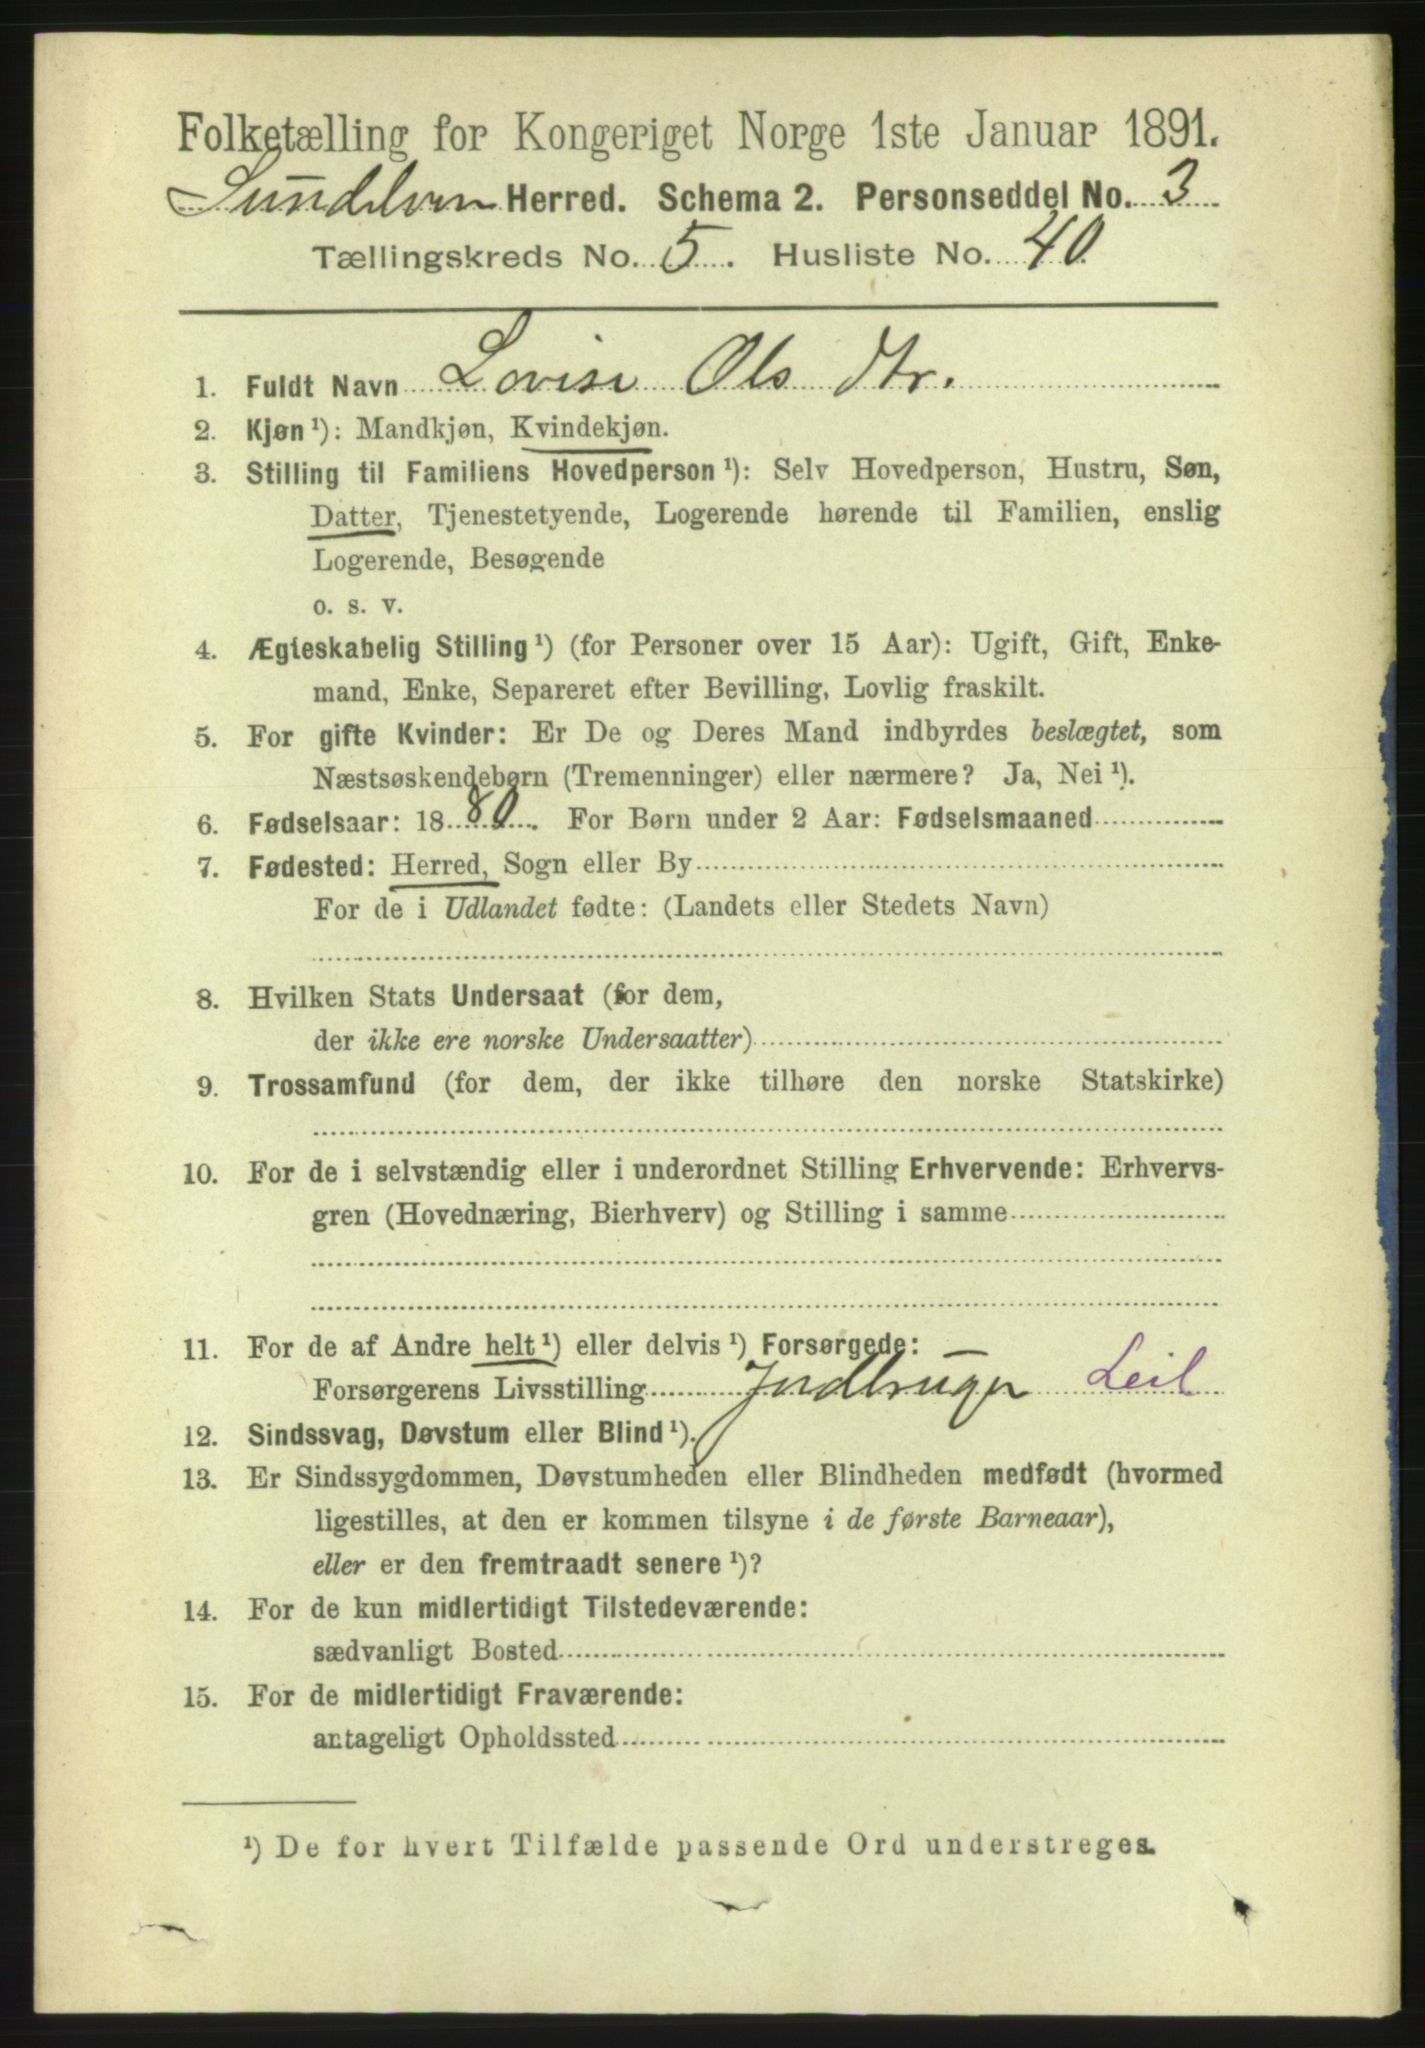 Folketælling for Kongeriget Norge 1ste Januar 1891.
Sundelven Herred. Schema 2. Personseddel No. 3
Tællingskreds No. 5. Husliste No. 40
1. Fuldt Navn Lovise Ols Dtr.
2. Kjøn¹): Mandkjøn, Kvindekjøn.
3. Stilling til Familiens Hovedperson¹): Selv Hovedperson, Hustru, Søn,
Datter, Tjenestetyende, Logerende hørende til Familien, enslig
Logerende, Besøgende
o. s. v.
4. Ægteskabelig Stilling¹) (for Personer over 15 Aar): Ugift, Gift, Enke-
mand, Enke, Separeret efter Bevilling, Lovlig fraskilt.
5. For gifte Kvinder: Er De og Deres Mand indbyrdes beslægtet, som
Næstsøskendebørn (Tremenninger) eller nærmere? Ja, Nei¹).
6. Fødselsaar: 1880. For Børn under 2 Aar: Fødselsmaaned
7. Fødested: Herred, Sogn eller By
For de i Udlandet fødte: (Landets eller Stedets Navn)
8. Hvilken Stats Undersaat (for dem,
der ikke ere norske Undersaatter)
9. Trossamfund (for dem, der ikke tilhøre den norske Statskirke)
10. For de i selvstændig eller i underordnet Stilling Erhvervende: Erhvervs-
gren (Hovednæring, Bierhverv) og Stilling i samme
11. For de af Andre helt¹) eller delvis¹) Forsørgede:
Forsørgerens Livsstilling Jordbruger Leil
12. Sindssvag, Døvstum eller Blind¹).
13. Er Sindssygdommen, Døvstumheden eller Blindheden medfødt (hvormed
ligestilles, at den er kommen tilsyne i de første Barneaar),
eller er den fremtraadt senere¹)?
14. For de kun midlertidigt Tilstedeværende:
sædvanligt Bosted
15. For de midlertidigt Fraværende:
antageligt Opholdssted
¹) De for hvert Tilfælde passende Ord understreges.